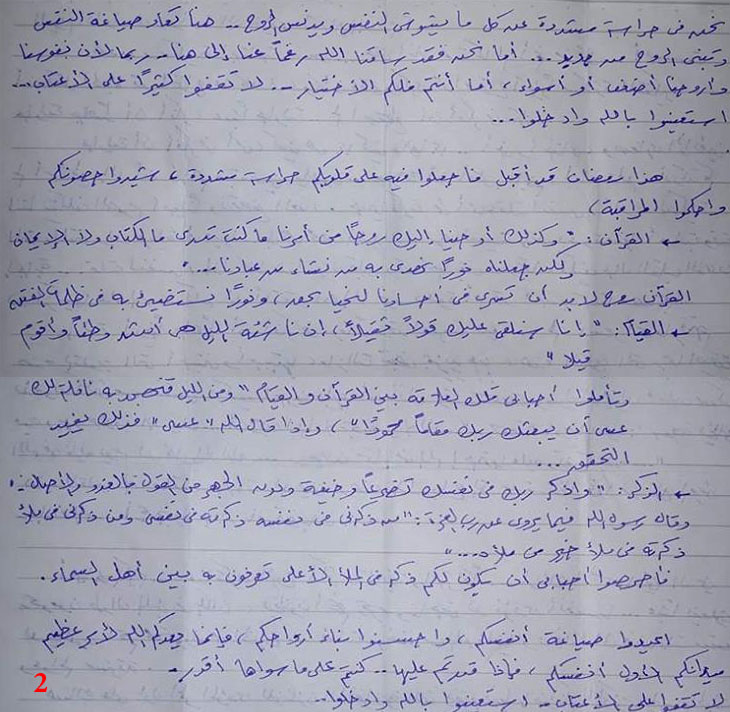 نحن فى حراسة مشددة عن كل ما يشوش النفس ويدنس الروح .. هنا تعاد صياغة النفس
وتبنى الروح من جديد ... أما نحن فقد ساقنا الله رغماً عنا إلى هنا - ربما لأن نفوسنا
وأرواحنا أضعف أو أسوء ، أما أنتم فلكم الاختيار .. لا تقفوا كثيرًا على الأعتاب ...
استعينوا بالله وادخلوا ...
هذا رمضان قد أقبل فاجعلوا فيه على قلوبكم حراسة مشددة ، شيدوا حصونكم
واحكموا المراقبة)
← القرآن : " وكذلك أوحينا إليك روحًا من أمرنا ما كنت تدرى ما الكتاب ولا الإيمان
ولكن جعلناه نورًا نهدى به من نشاء من عبادنا ... "
القرآن روح لابد أن تسرى فى أجسادنا لنحيا بحق ، ونورًا نستضيئ به فى ظلمات
← القيام : " إنا سنلقى عليك قولاً ثقيلاً ، إن ناشئة الليل هى أشد وطئاً وأقوم
قيلا "
وتأملوا أحبابى تلك العلاقة بين القرآن والقيام " ومن الليل فتهجد به نافلة لك
عسى أن يبعثك ربك مقاماً محمودًا " ، وإذا قال الله " عسى " فذلك يفيد
التحقق ...
← الذكر : " واذكر ربك فى نفسك تضرعاً وخيفة ودون الجهر من القول بالغدو والأصال "
وقال رسول الله فيما يروى عن رب العزة : " من ذكرنى فى نفسه ذكرته فى نفسى ومن ذكرنى فى ملأ
ذكرته فى ملأ خير من ملأه ... "
فاحرصوا أحبابى أن يكون لكم ذكر فى الملأ الأعلى تعرفون به بين أهل السماء .
اعيدوا صياغة أنفسكم ، واحسنوا بناء أرواحكم ، فإنما يعدكم الله لأمر عظيم
ميدانكم الأول أنفسكم ، فإذا قدرتم عليها .. كنتم على ما سواها أقدر -
لا تقفوا على الأعتاب - استعينوا بالله وادخلوا ..
2